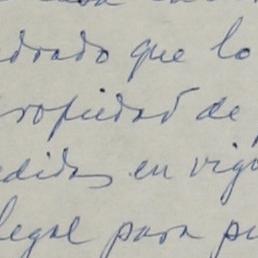 drado que lo
ropiedad de
edidas en vig
legal para pu